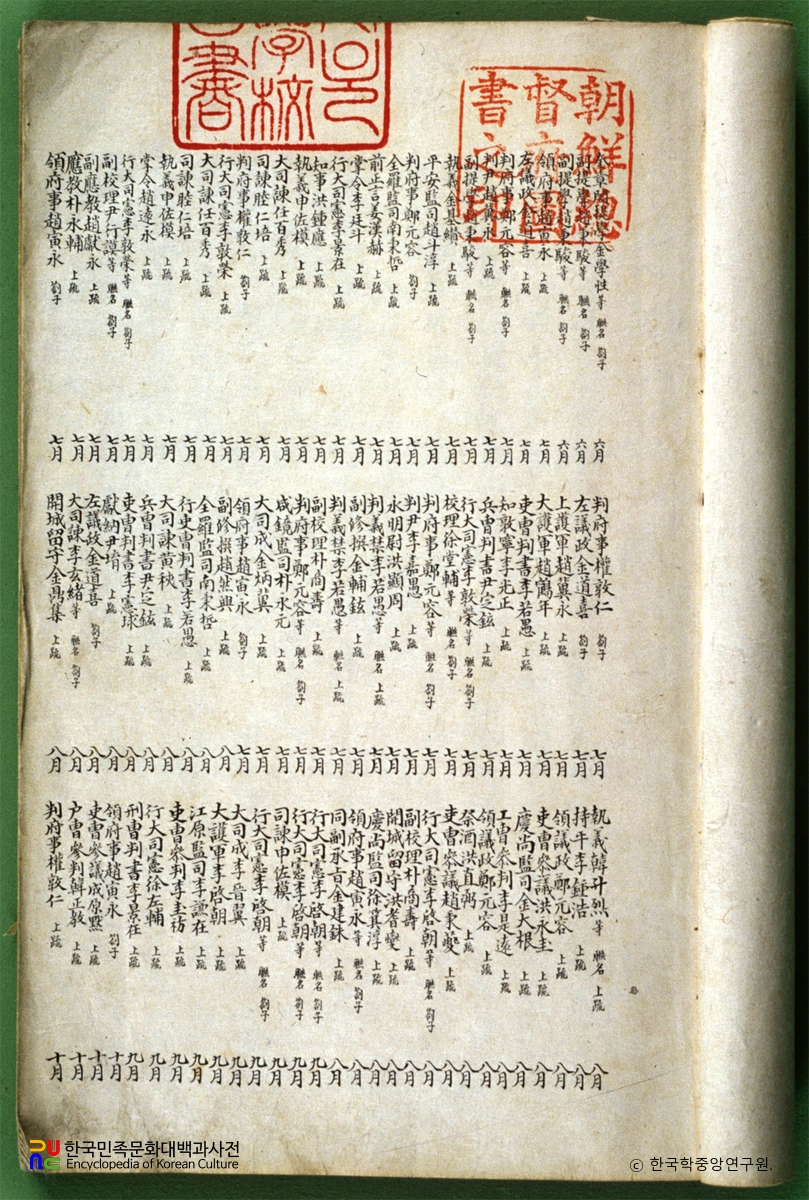 朝鮮總
督府圖
書之印
奎章閣提學金學性等 聯名 箚子 六月
副提學趙秉駿等 聯名 箚子 六月
副提學趙秉駿等 聯名 箚子 六月
領府事趙寅永 上疏 七月
左議政金道喜 上疏 七月
判府事鄭元容等 聯名 箚子 七月
判尹趙冀永 上疏 七月
副提學趙秉駿等 聯名 箚子 七月
執義金 纘 上疏 七月
平安監司趙斗淳 上疏 七月
判府事鄭元容 箚子 七月
全羅監司南秉哲 上疏 七月
前正言姜漢赫 上疏 七月
掌令李廷斗 上疏 七月
行大司憲李景在 上疏 七月
知事洪鍾應 上疏 七月
執義申佐模 上疏 七月
大司諫任百秀 上疏 七月
司諫睦仁培 上疏 七月
判府事權敦仁 箚子 七月
行大司憲李敦榮 上疏 七月
大司諫任百秀 上疏 七月
司諫睦仁培 上疏 七月
執義申佐模 上疏 七月
掌令趙遠永 上疏 七月
行大司憲李敦榮等 聯名 箚子 七月
副校理尹行謨等 聯名 箚子 七月
副應教趙獻永 上疏 七月
應教朴永輔 上疏 七月
領府事趙寅永 箚子 七月
判府事權敦仁 箚子 七月
左議政金道喜 箚子 七月
上護軍趙冀永 上疏 七月
大護軍趙鶴年 上疏 七月
吏曹判書李若愚 上疏 七月
知敦寧李光正 上疏 七月
兵曹判書尹定鉉 上疏 七月
行大司憲李敦榮等 聯名 箚子 七月
校理徐堂輔等 聯名 箚子 七月
判府事鄭元容等 聯名 箚子 七月
判尹李嘉愚 上疏 七月
永明尉洪顯周 上疏 七月
判義禁李若愚等 聯名 上疏 七月
副修撰金輔鉉 上疏 七月
判義禁李若愚等 聯名 上疏 七月
副校理朴商壽 上疏 七月
判府事鄭元容等 聯名 箚子 七月
咸鏡監司朴永元 上疏 七月
大司成金炳冀 上疏 七月
領府事趙寅永 箚子 七月
副修撰趙然興 上疏 八月
全羅監司南秉哲 上疏 八月
行吏曹判書李若愚 上疏 八月
大司諫黃秧 上疏 八月
兵曹判書尹定鉉 上疏 八月
吏曹判書李憲球 上疏 八月
獻納尹堉 上疏 八月
左議政金道喜 箚子 八月
大司諫李玄緖等 聯名 箚子 八月
開城留守金鼎集 上疏 八月
執義韓升烈等 聯名 上疏 八月
持平李鍾浩 上疏 八月
領議政鄭元容 上疏 八月
吏曹參議洪永圭 上疏 八月
慶尙監司金大根 上疏 八月
工曹參判李是遠 上疏 八月
領議政鄭元容 上疏 八月
祭酒洪直弼 上疏 八月
吏曹參議趙秉夔 上疏 八月
行大司憲李啓朝等 聯名 箚子 八月
副校理朴商壽 上疏 八月
開城留守洪耆燮 上疏 八月
慶尙監司徐箕淳 上疏 八月
領府事趙寅永等 聯名 箚子 八月
同副承旨金建銖 上疏 八月
行大司憲李啓朝等 聯名 箚子 九月
行大司憲李啓朝等 聯名 箚子 九月
司諫申佐模 上疏 九月
行大司憲李啓朝等 聯名 箚子 九月
大司成李晉翼 上疏 九月
大護軍李啓朝 上疏 九月
江原監司李謙在 上疏 九月
吏曹參判李圭祊 上疏 九月
行大司憲徐左輔 上疏 九月
刑曹判書李景在 上疏 十月
領府事趙寅永 箚子 十月
吏曹參議成原默 上疏 十月
戶曹參判韓正敎 上疏 十月
判府事權敦仁 上疏 十月
한국민족문화대백과사전
Encyclopedia of Korean Culture
© 한국학중앙연구원.